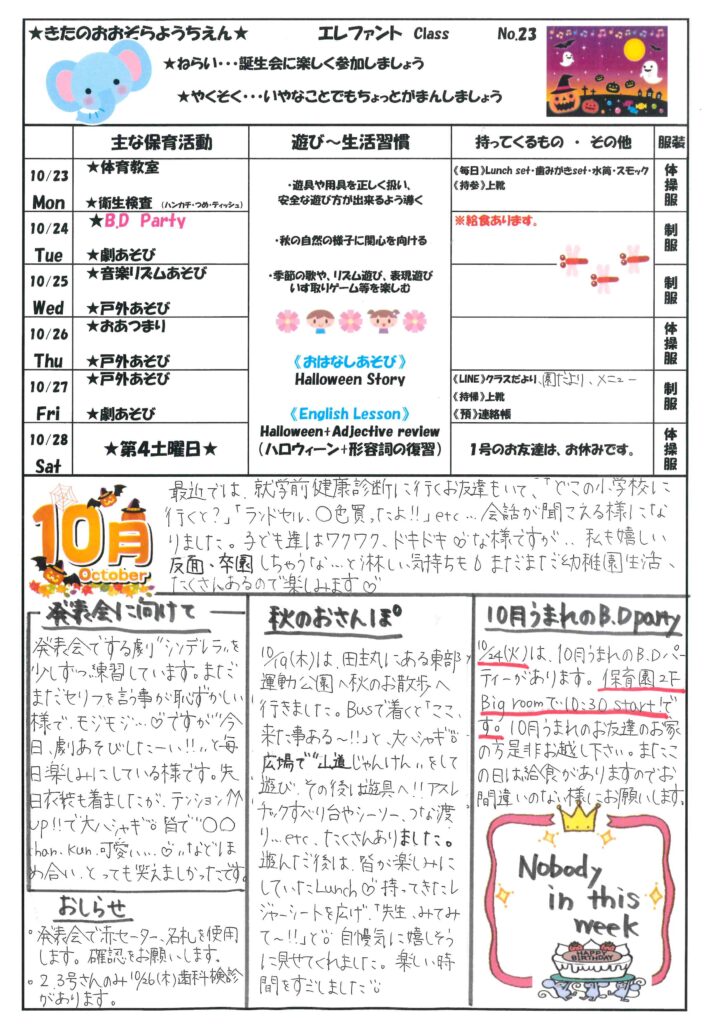 ★きたのおおぞらようちえん★ エレファント Class No.23
★ねらい・・・誕生会に楽しく参加しましょう
★やくそく・・・いやなことでもちょっとがまんしましょう
主な保育活動 遊び～生活習慣 持ってくるもの ・ その他 服装
10/23 Mon
★体育教室
★衛生検査 (ハンカチ・つめ・ティッシュ)
《毎日》Lunch set・歯みがきset・水筒・スモック
《持参》上靴
体操服
10/24 Tue
★B,D Party
★劇あそび
※給食あります。
制服
10/25 Wed
★音楽リズムあそび
★戸外あそび
制服
10/26 Thu
★おあつまり
★戸外あそび
体操服
10/27 Fri
★戸外あそび
★劇あそび
《LINE》クラスだより、園だより、メニュー
《持帰》上靴
《預》連絡帳
制服
10/28 Sat
★第4土曜日★
1号のお友達は、お休みです。
体操服
・遊具や用具を正しく扱い、
安全な遊び方が出来るよう導く
・秋の自然の様子に関心を向ける
・季節の歌や、リズム遊び、表現遊び
いす取りゲーム等を楽しむ
《おはなしあそび》
Halloween Story
《English Lesson》
Halloween+Adjective review
(ハロウィーン+形容詞の復習)
10月
October
最近では、就学前健康診断に行くお友達もいて、“「どこの小学校に
行くと？」「ランドセル、〇色買ったよ!!」etc…会話が聞こえる様にな
りました。子ども達はワクワク、ドキドキ♡な様ですが‥私も嬉しい
反面・卒園しちゃうな…と淋しい気持ちも まだまだ幼稚園生活、
たくさんあるので楽しみます♡
発表会に向けて
発表会でする劇“シンデレラ〟を
少しずつ練習しています。まだ
まだセリフを言う事が恥ずかしい
様で、モジモジ…♡ですが“今
日、劇あそびしたーい!!〟と毎
日楽しみにしている様です。先
日衣装も着ましたが、テンション↑↑
up!!で大ハシャギ 皆で“〇〇
chan.kun.可愛い…♡〟などほ
め合い、とっても笑えましかったです。
おしらせ
・発表会で赤セーター、名札を使用
します。確認をお願いします。
・2.3号さんのみ10/26(木)歯科検診
があります。
秋のおさんぽ
10/19(木)は、田主丸にある東部
運動公園へ秋のお散歩へ
行きました。Busで着くと「ここ、
来た事ある〜!!」と、大ハシャギ
広場で“山道じゃんけん〟をして
遊び、その後は遊具へ!!アスレ
チックすべり台やシーソー、つな渡
り…etc、たくさんありました。
遊んだ後は、皆が楽しみに
していたLunch♡持ってきたレ
ジャーシートを広げ、「先生、みてみ
て〜!!」と 自慢気に嬉しそう
に見せてくれました。楽しい時
間をすごしました
10月うまれのB.D party
10/24(火)は、10月うまれのB.Dパー
ティーがあります。保育園2F
Big roomで10:30 start!で
す。10月うまれのお友達のお家
の方是非お越し下さい。またこ
の日は給食がありますのでお
間違いのない様にお願いします。
Nobody
in this
week
HAPPY
BIRTHDAY